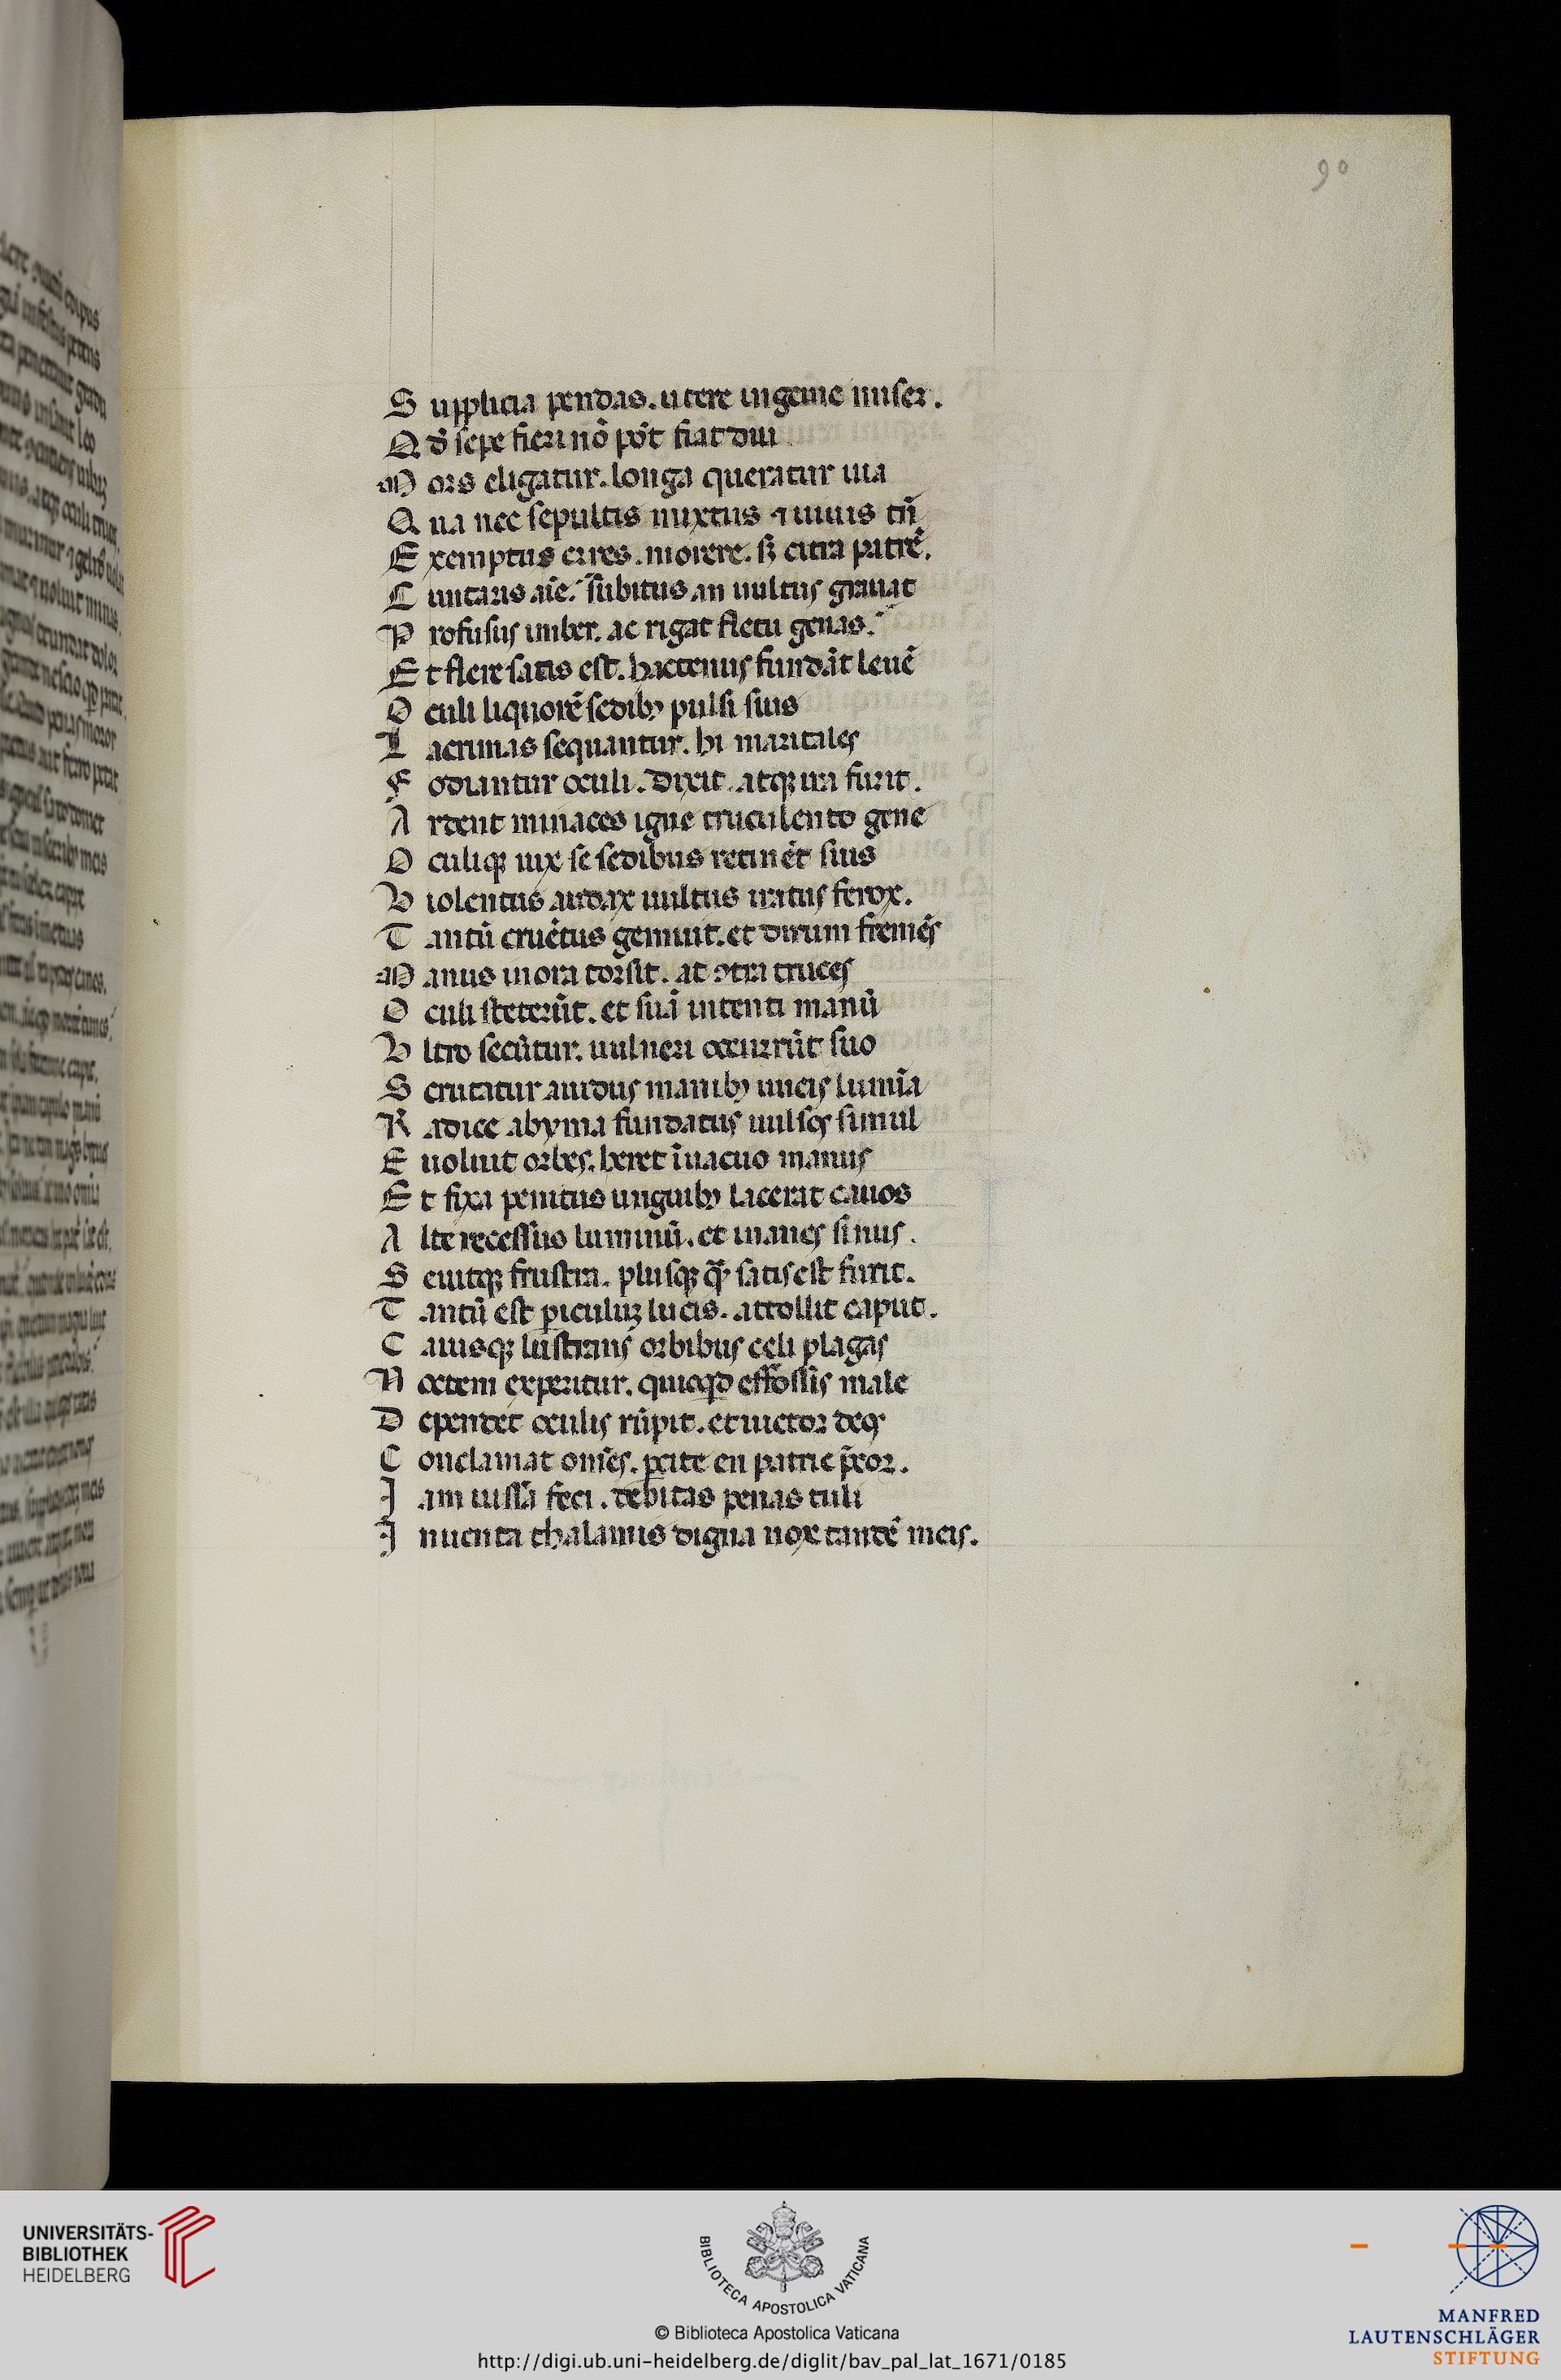 90
S upplicia pendas. utere ingenie miser.
Q d̄ sepe fieri nō pōt fiat diu
M ors eligatur. longa queratur uia
Q ua nec sepultis mixtus ⁊ uiuis tn̄
E xemptus erres. morere. sꝫ citra patrē.
C unctaris aīe. subitus an uultus grauat
P rofusus imber. ac rigat fletu genas.
E t flere satis est. hactenus fundāt leuē
O culi liquorē sedibꝫ pulsi suis
L acrimas sequantur. hi maritales
F odiantur oculi. dixit. atqꝫ ira furit.
A rdent minaces igne truculento gene
O culiqꝫ uix se sedibus retinēt suis
V iolentus audax uultus iratus ferox.
T antū cruētus gemuit. et dirum fremēs
M anus in ora torsit. at ꝯtra truces
O culi steterūt. et suā intenti manū
V ltro secūtur. uulneri occurrūt suo
S crutatur auidus manibꝫ uncis lumīa
R adice ab yma fundatus uulsos simul
E uoluit orbes. heret ī uacuo manus
E t fixa penitus unguibꝫ lacerat cauos
A lte recessus luminū. et inanes sinus.
S euitqꝫ frustra. plusqꝫ qͣꝫ satis est furit.
T antū est ꝑiculuꝫ lucis. attollit caput.
C auisqꝫ lustrans orbibus celi plagas
N octem experitur. quicqd effossis male
D ependet oculis rūpit. et uictor deos
C onclamat om̄es. parcite en patrie p̄cor.
I am iussa feci. debitas penas tuli
I nuenta thalamis digna nox tandē meis.
UNIVERSITÄTS-
BIBLIOTHEK
HEIDELBERG
BIBLIOTECA APOSTOLICA VATICANA
© Biblioteca Apostolica Vaticana
http://digi.ub.uni-heidelberg.de/diglit/bav_pal_lat_1671/0185
MANFRED
LAUTENSCHLÄGER
STIFTUNG